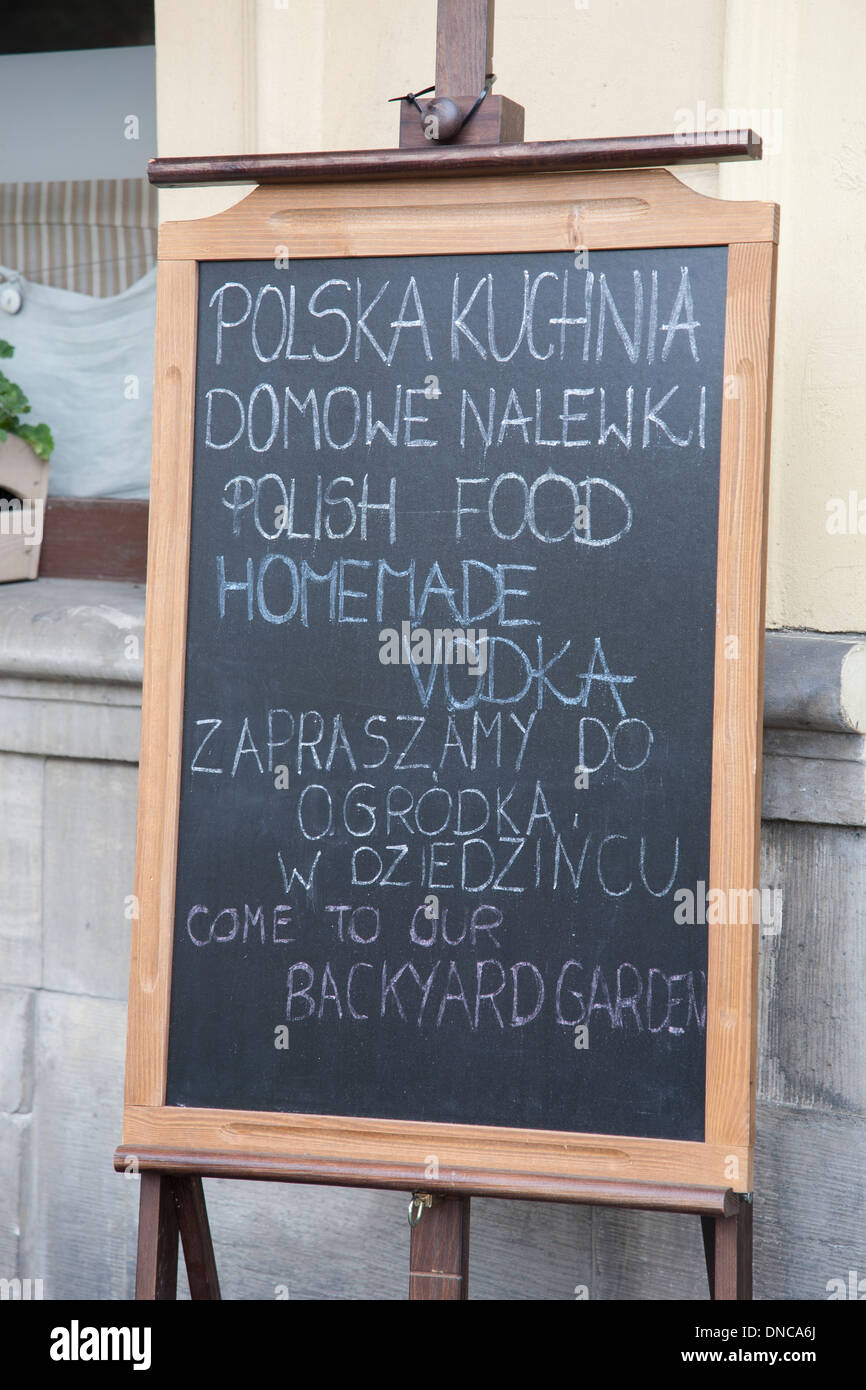 POLSKA KUCHNIA
DOMOWE NALEWKI
POLISH FOOD
HOMEMADE
VODKA
ZAPRASZAMY DO
OGRÓDKA,
W DZIEDZIŃCU
COME TO OUR
BACKYARD GARDEN
alamy
alamy stock photo
DNCA6J
www.alamy.com